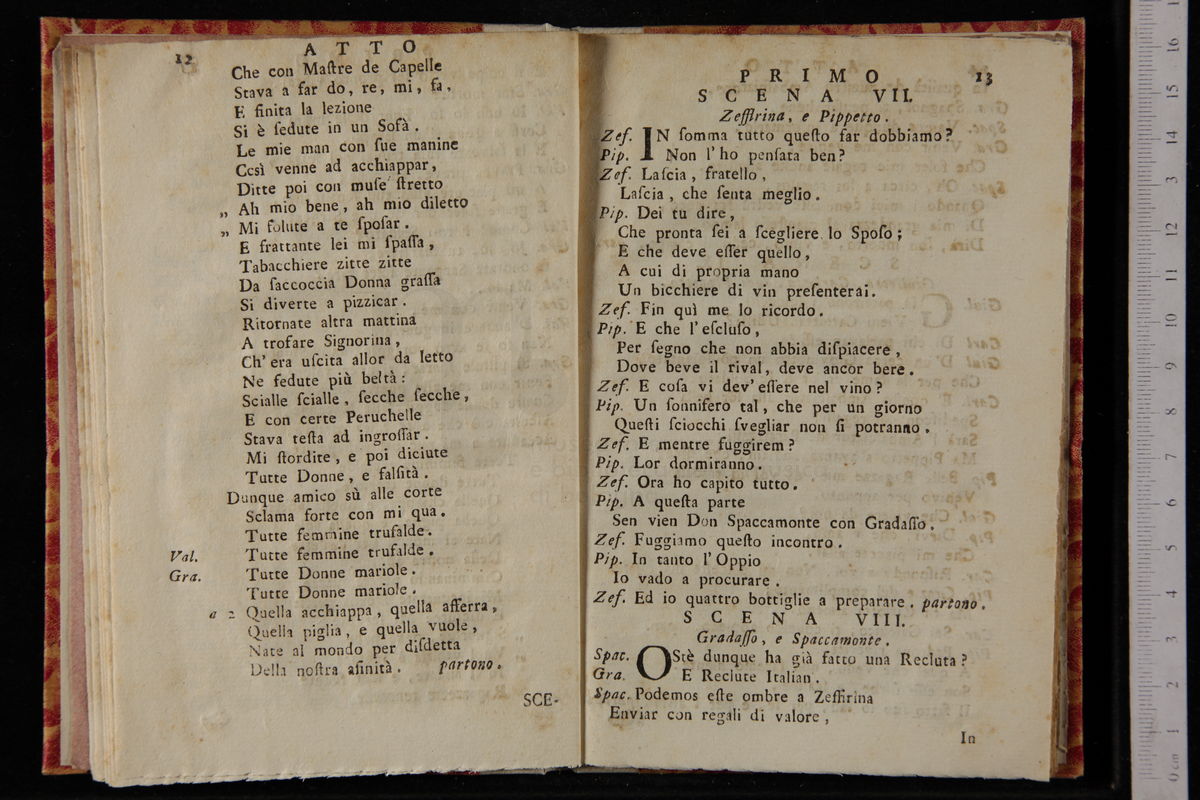 12
A T T O
Che con Maſtre de Capelle
Stava a far do, re, mi, fa,
E finita la lezione
Si è ſedute in un Sofà.
Le mie man con ſue manine
Cesì venne ad acchiappar,
Ditte poi con muſe ſtretto
„ Ah mio bene, ah mio diletto
„ Mi ſolute a te ſpoſar.
E frattante lei mi ſpaſſa,
Tabacchiere zitte zitte
Da ſaccoccia Donna graſſa
Si diverte a pizzicar.
Ritornate altra mattina
A trofare Signorina,
Ch' era uſcita allor da letto
Ne ſedute più beltà:
Scialle ſcialle, ſecche ſecche,
E con certe Peruchelle
Stava teſta ad ingroſſar.
Mi ſtordite, e poi diciute
Tutte Donne, e falſità.
Dunque amico sù alle corte
Sclama forte con mi qua.
Tutte femmine trufalde.
Val. Tutte femmine trufalde.
Gra. Tutte Donne mariole.
Tutte Donne mariole.
a 2 Quella acchiappa, quella afferra,
Quella piglia, e quella vuole,
Nate al mondo per diſdetta
Della noſtra afinità. partono.
SCE-
P R I M O 13
S C E N A VII.
Zeffirina, e Pippetto.
Zef. IN ſomma tutto queſto far dobbiamo?
Pip. Non l' ho penſata ben?
Zef. Laſcia, fratello,
Laſcia, che ſenta meglio.
Pip. Dei tu dire,
Che pronta ſei a ſcegliere lo Spoſo;
E che deve eſſer quello,
A cui di propria mano
Un bicchiere di vin preſenterai.
Zef. Fin quì me lo ricordo.
Pip. E che l' eſcluſo,
Per ſegno che non abbia diſpiacere,
Dove beve il rival, deve ancor bere.
Zef. E coſa vi dev' eſſere nel vino?
Pip. Un ſonnifero tal, che per un giorno
Queſti ſciocchi ſvegliar non ſi potranno.
Zef. E mentre fuggirem?
Pip. Lor dormiranno.
Zef. Ora ho capito tutto.
Pip. A queſta parte
Sen vien Don Spaccamonte con Gradaſſo.
Zef. Fuggiamo queſto incontro.
Pip. In tanto l' Oppio
Io vado a procurare.
Zef. Ed io quattro bottiglie a preparare. partono.
S C E N A VIII.
Gradaſſo, e Spaccamonte.
Spac. OStè dunque ha già fatto una Recluta?
Gra. E Reclute Italian.
Spac. Podemos eſte ombre a Zeffirina
Enviar con regali di valore,
In